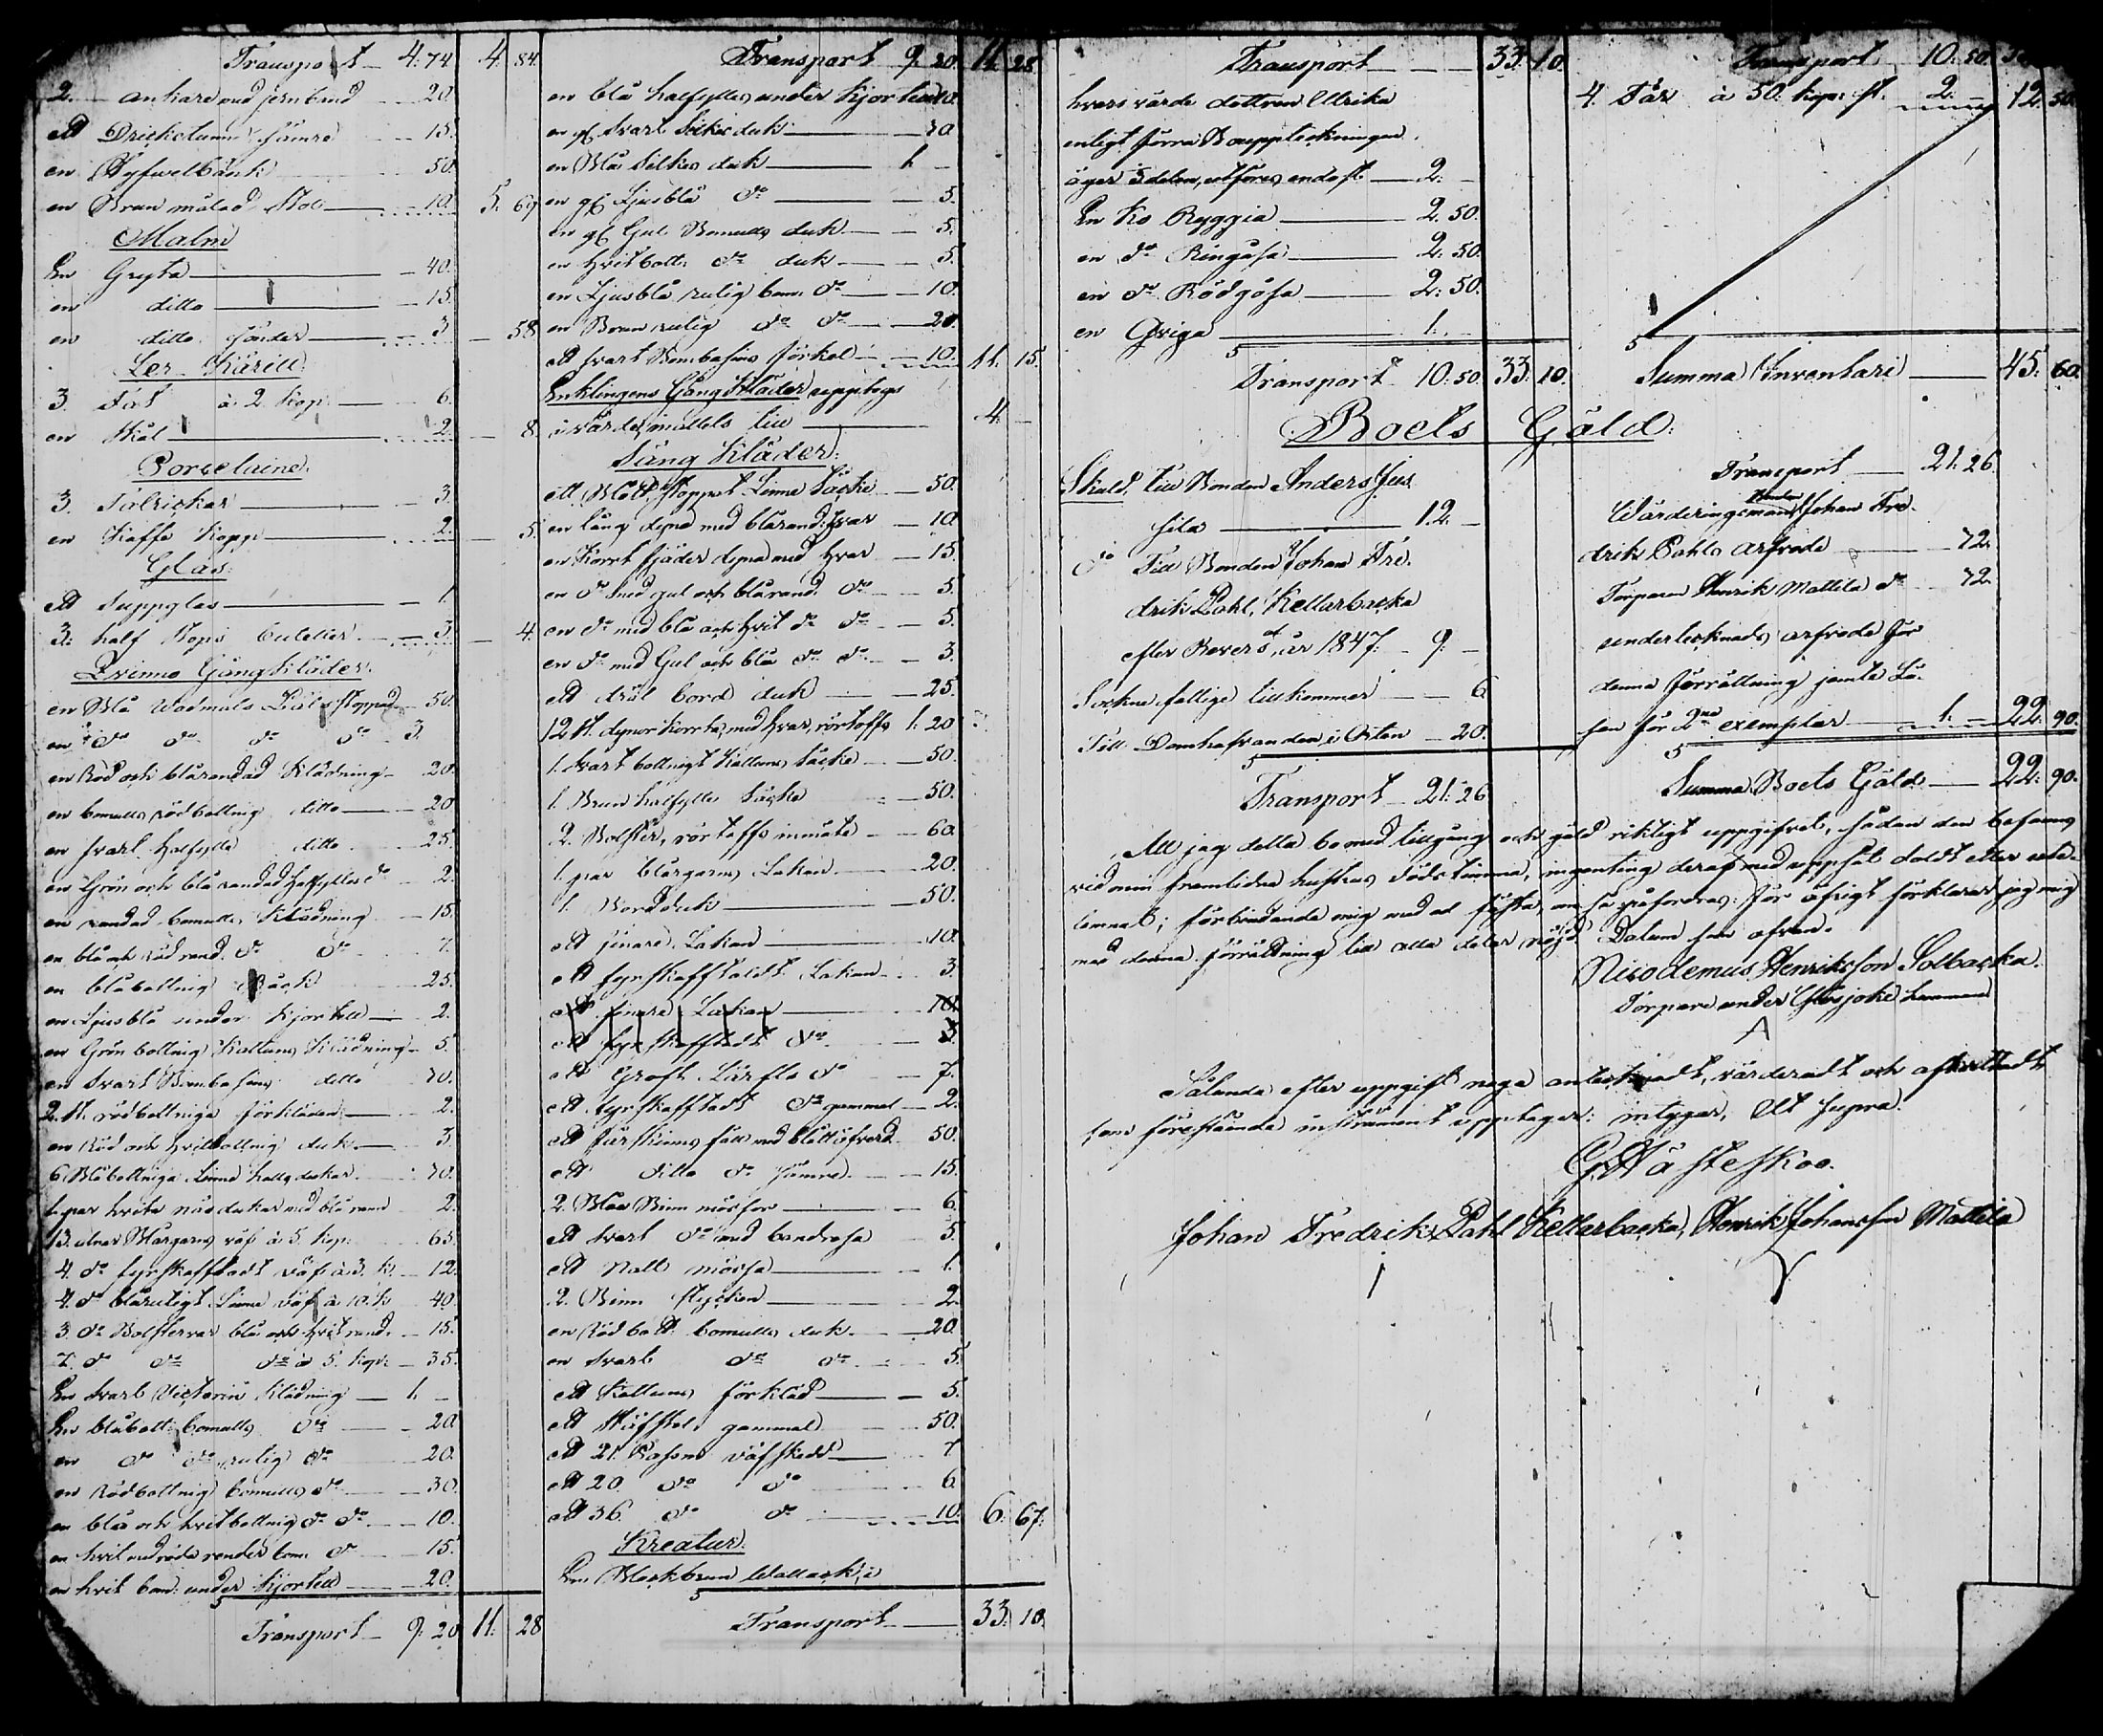 Transport 4. 74 4. 84.
2. ankare med jernband 20.
ett Drickstunna sämre 15.
en Hyfvelbänk 50.
en Brun målad Stol 10. 5. 69
Malm
En Gryta 40.
en ditto 15.
en ditto sönder 3 58
Ler Kärill
3. Fat à 2 kop. 6.
en Skål 2. 8.
Porcelaine.
3. Talrickar 3.
en Kaffe Kopp 2. 5.
Glas.
ett Suppglas 1.
3. half Stops buteller 3. 4.
Qvinno Gångkläder.
en Blå Vadmals Kjol stoppad 50.
en do do do do 3.
en Röd och blårandad Klädning 20.
en bomulls rödbottnig ditto 20
en svart Halfylle ditto 25.
en Grön och blårandad Halfylles do 2.
en randad bomulls Klädning 15.
en blå och röd rand. do do 7.
en blåbottnig 25.
en Ljusblå under Kjortell 2.
en Grön bottnig Kattuns Klädning 5.
en Svart Bombasins ditto 70.
2. st. rödbottniga förkläden 2.
en Röd och Hvitbottnig duk 3
6 Blåbottniga Linne halsdukar 70.
1. par hvita näsdukar med blå rand 2.
13. alnar Blårgarns väf à 5 kop. 65.
4. do fyrskafftadt väf à 3. k. 12.
4. do blårutigt Linne väf à 10. k 40.
3. do Bolstervar blå och hvit rand. 15.
7. do do do à 5. kop. 35.
En svart Victoria Klädning 1.
En blåbott. bomulls do 20
en do do rutig do 20.
en Rödbottnig bomulls do 30.
en blå och hvitbottnig do do 10.
en hvit med röda render bom. do 15.
en hvit bom. under Kjortell 20.
Transport 9. 20 11. 28
Transport 9. 20. 11. 28
en blå halfylles under Kjortell 10.
en gl. Svart Silkes duk 30
en Blå Silkes duk 1.
en gl. Ljusblå do 5.
en gl. Gul Bomulls duk 5.
en hvitbott. do duk 5.
en Ljusblå rutig bom. do 10.
en Brun rutig do do 20.
ett svart Bombasins förkläd 10. 11. 15.
Enklingens Gång Kläder upptogs
i värde, mittels till 4.
Säng Kläder.
ett Blått stoppat Linne Täcke 50.
en lång dyna med blårand. hvar 10
en Kort fjäder dyna med hvar 15.
en do med gul och blå rand. do 5.
en do med blå och hvit do do 5.
en do med Gul och blå do do 3.
ett dräl bord duk 25.
12 st. dynor korrta, med hvar, rörtoffs 1. 20
1. Svart bottnigt Kattuns Täcke 50.
1. Brun halfylles Täcke 50.
2. Bolster, rörtoffs inmäte 60.
1. par blårgarns Lakan 20.
1. Bordduk 50.
ett finare Lakan 10.
ett fyrskafftadt Lakan 3.
ett finare Lakan 10.
ett fyrskafftadt do 3.
ett Groft Lärfts do 7.
ett fyrskafftadt do gammal 2.
ett fårskinns fäll med blått öfverd. 50.
ett ditto do sämre 15.
2. Blåa Binn mössor 6.
ett svart do med bandrosa 5.
ett Natt mössa 1.
2. Binn stycken 2.
en Röd bott. bomulls duk 20
en svart do do 5.
ett Kattuns förkläd 5.
ett Väfstol, gammal 50.
ett 21. Pasems väfskedd 7.
ett 20. do do 6.
ett 36. do do 10. 6. 67.
Kreatur.
En Blackbrun Wallack, i
Transport 33. 10.
Transport 33. 10.
hvars värde dottren Ullrika
enligt förra Bouppteckningen
äger delen, utföres endast 2.
En Ko Ryggia 2. 50.
en do Ringåsa 2. 50.
en do Rödgåsa 2. 50.
en Qviga 1.
Transport 10. 50 33. 10.
Transport 10. 50.
4. Får à 50. kop. st. 2. 12. 50.
Summa Inventarii 45. 60.
Boets Gäld.
Skuld till Bonden Anders Jus
sila 12.
do Till Bonden Johan Fre-
drik Dahl, Kellarbacka
efter Revers af år 1847. 9.
Sockne fattige tillkommer 6
Till Domhafvanden i Orten 20.
Transport 21. 26
Transport 21. 26.
Wärderingsmannen Bonden Johan Fre-
drik Dahls arfvode 72.
Torparen Henrik Mattila do 72.
undertecknads arfvode för
denna förrättning jemte Lö-
sen för 2ne exemplar 1. 22. 90.
Summa Boets Gäld 22. 90.
Att jag detta bo med tillgång och gäld riktigt uppgifvet, sådan den befanns
vid min framlidna hustrus dödstimma, ingenting deraf med uppsåt doldt eller ute-
lemnat; förbindande mig med ed fästa, om så påfordras. för öfrigt förklarar jag mig
med denna förrättning till alla delar nöjd. Datum som ofvan.
Nicodemus Henriksson Solbacka.
Torpare under
Sålunda efter uppgift noga antecknadt, värderadt och afslutadt
som förestående instrument upptager: intygar, Ut Supra.
G. Hästeskoo.
Johan Fredrik Dahl Kellarbacka, Henrik Johansson Mattila